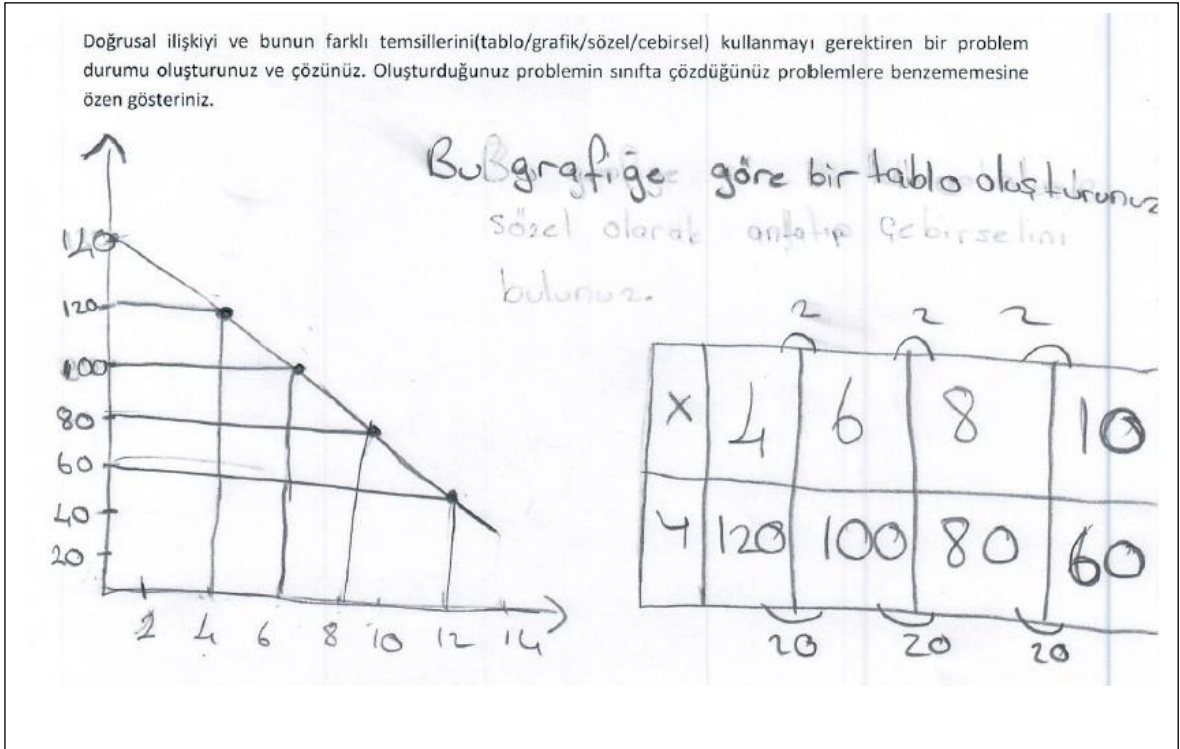 Doğrusal ilişkiyi ve bunun farklı temsillerini(tablo/grafik/sözel/cebirsel) kullanmayı gerektiren bir problem
durumu oluşturunuz ve çözünüz. Oluşturduğunuz problemin sınıfta çözdüğünüz problemlere benzememesine
özen gösteriniz.
Bu grafiğe göre bir tablo oluşturunuz
sözel olarak anlatıp cebirselini
bulunuz.
140
120
100
80
60
40
20
2 4 6 8 10 12 14
2 2 2
x 4 6 8 10
y 120 100 80 60
20 20 20